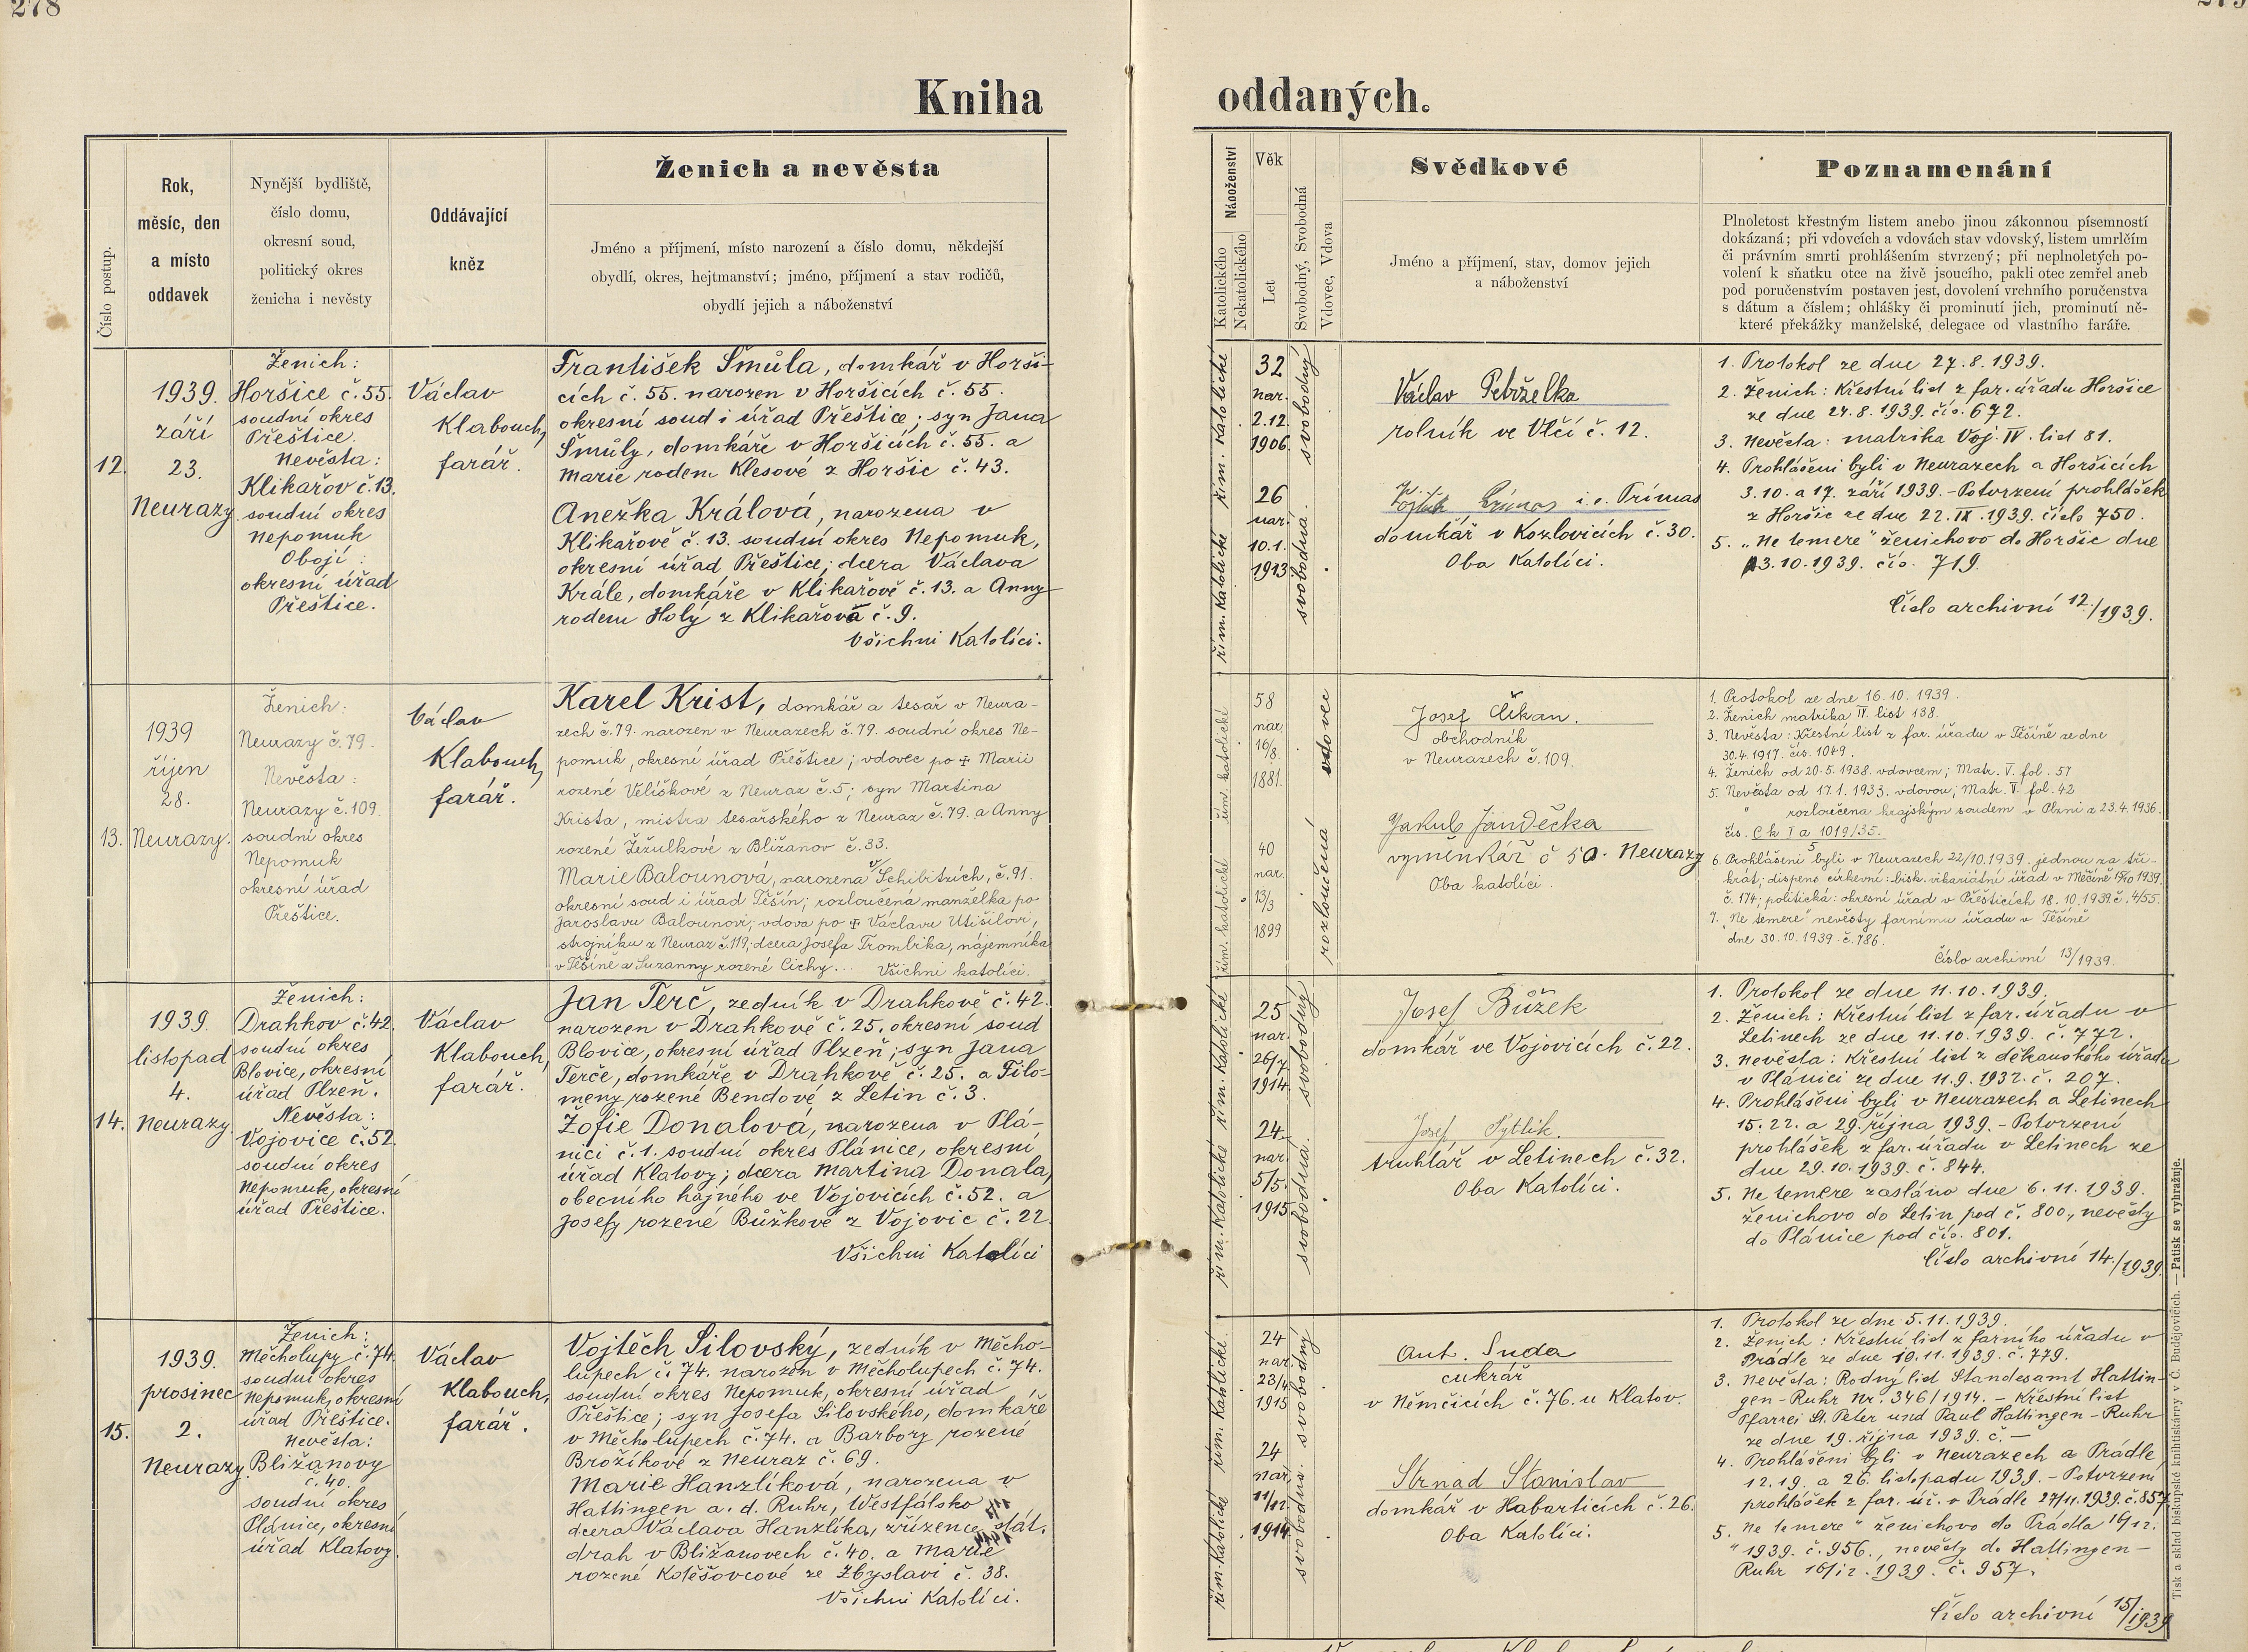 278
Kniha
oddaných.
Číslo postup.
Rok,
měsíc, den
a misto
oddavek
Nynější bydliště,
číslo domu,
okresní soud,
politický okres
ženicha i nevěsty
Oddávající
kněz
Ženich a nevěsta
Jméno a příjmení, místo narození a číslo domu, někdejší
obydlí, okres, hejtmanství; jméno, příjmení a stav rodičů,
obydlí jejich a náboženství
Náboženství
Katolického
Nekatolického
Věk
Let
Svobodný, Svobodná
Vdovec, Vdova
Svědkové
Jméno a příjmení, stav, domov jejich
a náboženství
Poznamenání
Plnoletost křestným listem anebo jinou zákonnou písemností
dokázaná; při vdovcích a vdovách stav vdovský, listem umrlčím
či právním smrti prohlášením stvrzený; při neplnoletých po-
volení k sňatku otce na živě jsoucího, pakli otec zemřel aneb
pod poručenstvím postaven jest, dovolení vrchního poručenstva
s dátum a číslem; ohlášky či prominutí jich, prominutí ně-
které překážky manželské, delegace od vlastního faráře.
12.
1939.
září
23.
Neurazy
Ženich:
Horšice č. 55.
soudní okres
Přeštice.
Nevěsta:
Klikařov č. 13.
soudní okres
Nepomuk
Obojí:
okresní úřad
Přeštice.
Václav
Klabouch,
farář.
František Šmůla, domkář v Horši-
cích č. 55. narozen v Horšicích č. 55.
okresní soud i úřad Přeštice; syn Jana
Šmůly, domkáře v Horšicích č. 55. a
Marie rodem Klesové z Horšic č. 43.
Anežka Králová, narozena v
Klikařově č. 13. soudní okres Nepomuk,
okresní úřad Přeštice; dcera Václava
Krále, domkáře v Klikařově č. 13. a Anny
rodem Holý z Klikařova č. 9.
Všichni Katolíci.
řím. Katolické
řím. Katolické
32
nar.
2.12.
1906.
26
nar.
10.1.
1913.
svobodný
svobodná.
Václav Petrželka
rolník ve Vlčí č. 12.
i. e. Trímas
domkář v Kozlovicích č. 30.
Oba Katolíci.
1. Protokol ze dne 27. 8. 1939.
2. Ženich: Křestní list z far. úřadu Horšice
ze dne 24. 8. 1939. čís. 672.
3. Nevěsta: matrika Voj. IV. list 81.
4. Prohlášeni byli v Neurazech a Horšicích
3. 10. a 17. září 1939. - Potvrzení prohlášek
z Horšic ze dne 22. IX. 1939. číslo 750.
5. „Ne temere" ženichovo do Horšic dne
3. 10. 1939. čís. 719.
Číslo archivní 12./1939.
13.
1939
říjen
28.
Neurazy.
Ženich:
Neurazy č. 79.
Nevěsta:
Neurazy č. 109.
soudní okres
Nepomuk
okresní úřad
Přeštice.
Václav
Klabouch,
farář.
Karel Krist, domkář a tesař v Neura-
zech č. 79. narozen v Neurazech č. 79. soudní okres Ne-
pomuk, okresní úřad Přeštice; vdovec po + Marii
rozené Velíškové z Neuraz č. 5; syn Martina
Krista, mistra tesařského z Neuraz č. 79. a Anny
rozené Žežulkové z Bližanov č. 33.
Marie Balounová, narozena v Schibitzích, č. 91.
okresní soud i úřad Těšín; rozloučená manželka po
Jaroslavu Balounovi; vdova po + Václavu Utišilovi,
strojníku z Neuraz č. 119; dcera Josefa Trombika, nájemníka
v Těšíně a Zuzanny rozené Cichy... Všichni katolíci.
řím. katolické
řím. katolické
58
nar.
16/8.
1881.
40
nar.
13/3
1899
vdovec
rozloučená
Josef Čikan.
obchodník
v Neurazech č. 109.
Jakub Jandečka
vyminkář č 50. Neurazy
Oba katolíci.
1. Protokol ze dne 16. 10. 1939.
2. Ženich matrika IV. list 138.
3. Nevěsta: Křestní list z far. úřadu v Těšíně ze dne
30.4. 1917. čís. 1049.
4. Ženich od 20. 5. 1938. vdovcem; Matr. V. fol. 57
5. Nevěsta od 17. 1. 1933. vdovou; Matr. V. fol. 42
" rozloučena krajským soudem v Plzni z 23.4. 1936.
čís. C k I a 1019/35.
6. Prohlášeni byli v Neurazech 22/10. 1939. jednou za tři-
krát; dispens církevní: bisk. vikariátní úřad v Měčíně 17/10 1939.
č. 174; politická: okresní úřad v Přešticích 18. 10. 1939 č. 4/55.
7. „Ne temere" nevěsty farnímu úřadu v Těšíně
dne 30. 10. 1939. č. 786.
Číslo archivní 13/1939.
14.
1939.
listopad
4.
Neurazy
Ženich:
Drahkov č. 42.
soudní okres
Blovice, okresní
úřad Plzeň.
Nevěsta:
Vojovice č. 52.
soudní okres
Nepomuk, okresní
úřad Přeštice.
Václav
Klabouch,
farář.
Jan Terč, zedník v Drahkově č. 42.
narozen v Drahkově č. 25. okresní soud
Blovice, okresní úřad Plzeň; syn Jana
Terče, domkáře v Drahkově č. 25. a Filo-
meny rozené Bendové z Letin č. 3.
Žofie Donalová, narozena v Plá-
nici č. 1. soudní okres Plánice, okresní
úřad Klatovy; dcera Martina Donala,
obecního hajného ve Vojovicích č. 52. a
Josefy rozené Bůžkové z Vojovic č. 22.
Všichni Katolíci
řím. Katolické
řím. Katolické
25
nar.
26/7
1914.
24.
nar.
5/5.
1915.
svobodný
svobodná.
Josef Bůžek
domkář ve Vojovicích č. 22.
Josef Pytlík.
truhlář v Letinech č. 32.
Oba Katolíci.
1. Protokol ze dne 11. 10. 1939.
2. Ženich: Křestní list z far. úřadu v
Letinech ze dne 11. 10. 1939. č. 772.
3. Nevěsta: Křestní list z děkanského úřadu
v Plánici ze dne 11. 9. 1932. č. 207.
4. Prohlášeni byli v Neurazech a Letinech
15. 22. a 29. října 1939. - Potvrzení
prohlášek z far. úřadu v Letinech ze
dne 29. 10. 1939. č. 844.
5. Ne temere zasláno dne 6. 11. 1939.
ženichovo do Letin pod č. 800., nevěsty
do Plánice pod čís. 801.
Číslo archivní 14./1939.
15.
1939.
prosinec
2.
Neurazy
Ženich:
Měcholupy č. 74.
soudní okres
Nepomuk, okresní
úřad Přeštice.
Nevěsta:
Bližanovy
č. 40.
soudní okres
Plánice, okresní
úřad Klatovy.
Václav
Klabouch,
farář.
Vojtěch Silovský, zedník v Měcho-
lupech č. 74. narozen v Měcholupech č. 74.
soudní okres Nepomuk, okresní úřad
Přeštice; syn Josefa Silovského, domkáře
v Měcholupech č. 74. a Barbory rozené
Brožíkové z Neuraz č. 69.
Marie Hanzlíková, narozena v
Hattingen a. d. Ruhr, Westfálsko
dcera Václava Hanzlíka, zřízence stát.
drah v Bližanovech č. 40. a Marie
rozené Kolěšovcové ze Zbyslavi č. 38.
Všichni Katolíci.
řím. Katolické
řím. Katolické
24
nar.
23/4
1915
24
nar.
11/12.
1914
svobodný
svobodna.
Ant. Suda
cukrář
v Němčicích č. 76. u Klatov.
Strnad Stanislav
domkář v Habarticích č. 26.
Oba Katolíci.
1. Protokol ze dne 5. 11. 1939.
2. Ženich: Křestní list z farního úřadu v
Prádle ze dne 10. 11. 1939. č. 779.
3. Nevěsta: Rodný list Standesamt Hattin-
gen-Ruhr Nr. 346/1914. - Křestní list
Pfarrei St. Peter und Paul Hattingen-Ruhr
ze dne 19. října 1939. č. —
4. Prohlášeni byli v Neurazech a Prádle,
12. 19. a 26. listopadu 1939. - Potvrzení
prohlášek z far. úř. v Prádle 27/11. 1939. č. 857.
5. Ne temere" ženichovo do Prádla 16/12.
" 1939. č. 956., nevěsty do Hattingen-
Ruhr 16/12. 1939. č. 957.
Číslo archivní 15/1939
Tisk a sklad biskupské knihtiskárny v Č. Budějovicích. — Patisk se vyhražuje.